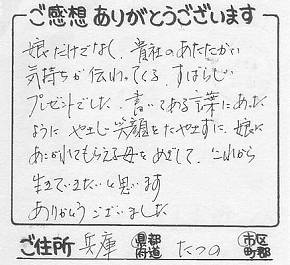 ご感想ありがとうございます
娘だけでなく、貴社のあたたかい
気持ちが伝わってくる、すばらしい
プレゼントでした。書いてある言葉にあった
ように やさしい笑顔をたやさずに、娘に
あこがれてもらえる母をめざして、これから
生きていきたいと思います
ありがとうございました
ご住所 兵庫 都道府県 たつの 市区町郡